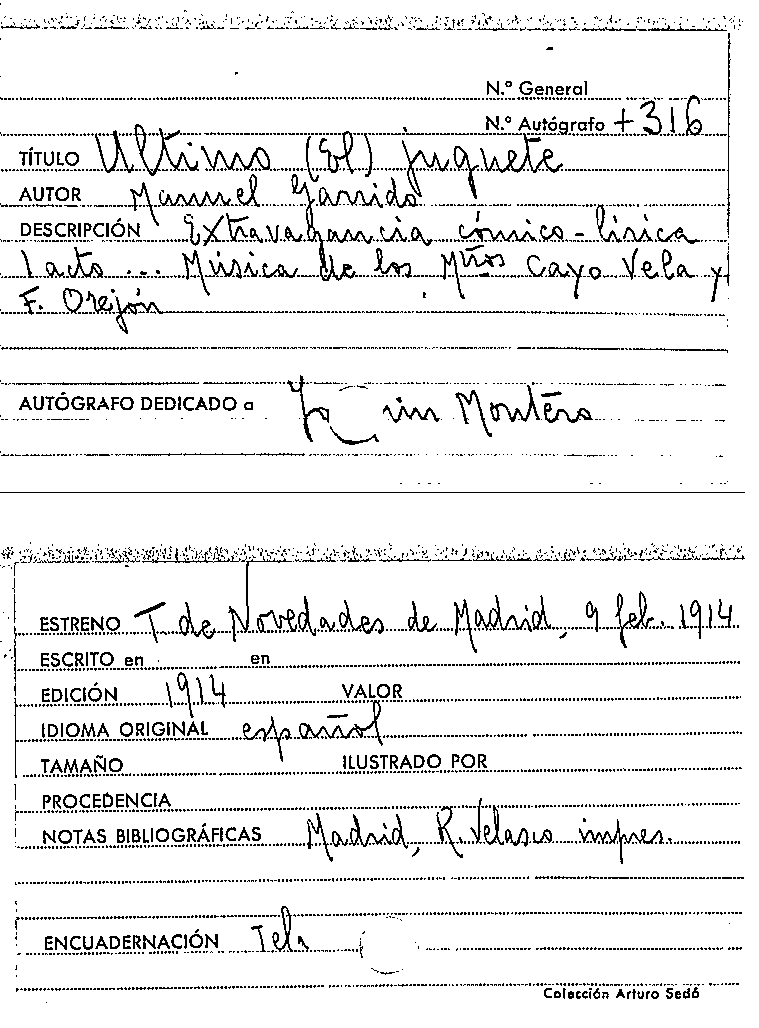 N.º General
N.º Autógrafo +316
TÍTULO Ultimo (El) juguete
AUTOR Manuel Garrido
DESCRIPCIÓN Extravagancia cómico-lírica
1 acto ... Música de los Mtros Cayo Vela y
F. Orejón
AUTÓGRAFO DEDICADO a Montero
ESTRENO T. de Novedades de Madrid, 9 feb. 1914
ESCRITO en en
EDICIÓN 1914 VALOR
IDIOMA ORIGINAL español
TAMAÑO ILUSTRADO POR
PROCEDENCIA
NOTAS BIBLIOGRÁFICAS Madrid, R. Velasco impres.
ENCUADERNACIÓN Tela
Colección Arturo Sedó